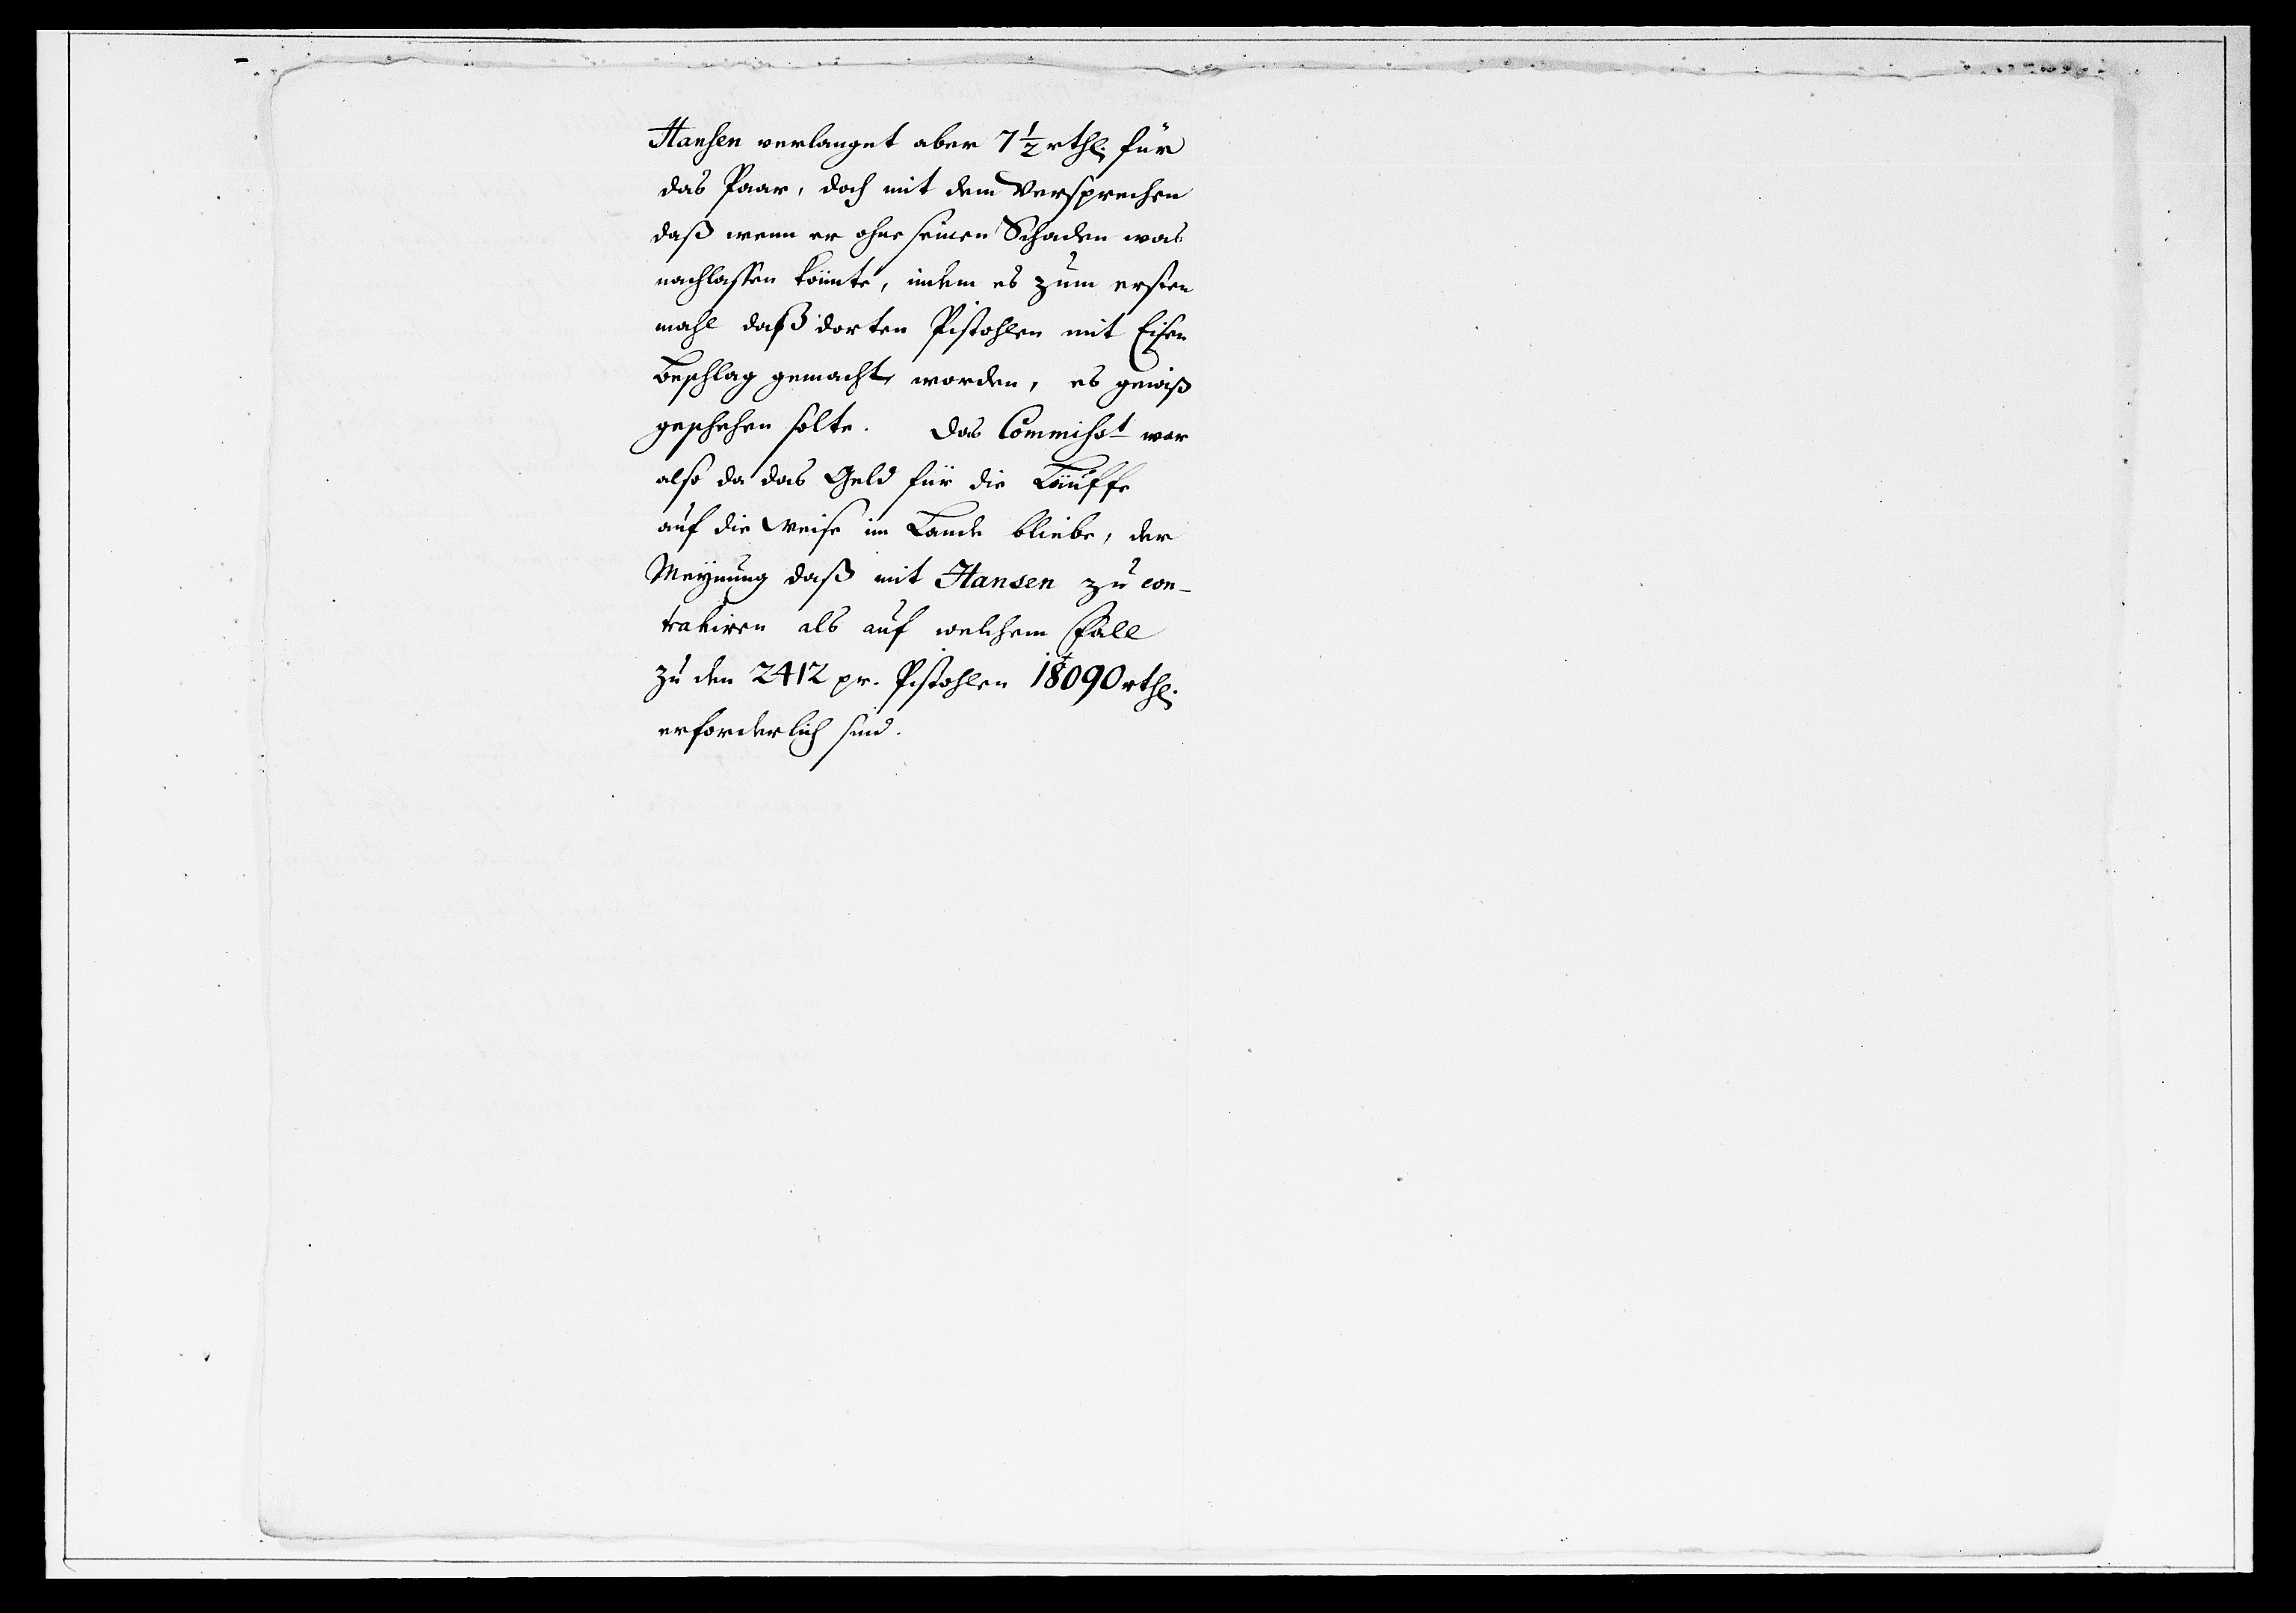 Hansen verlanget aber 7 1/2 rthl. für
das Paar, doch mit dem Versprechen
daß wenn er ohne seinen Schaden was
nachlassen könnte, indem es zum ersten
mahl daß dorten Pistohlen mit Eisen
Beschlag gemacht worden, es gewiß
geschehen solte. Das Commiss.t war
also da das Geld für die Läuffe
auf die Weise im Lande bliebe, der
Meynung daß mit Hansen zu con-
trahiren als auf welchem Fall
zu den 2412 pr. Pistohlen 18090 rthl.
erforderlich sind.